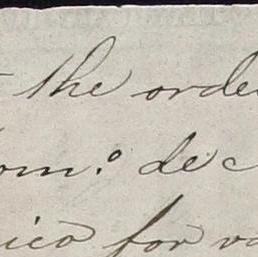 the orde
om.º de c
ico for va